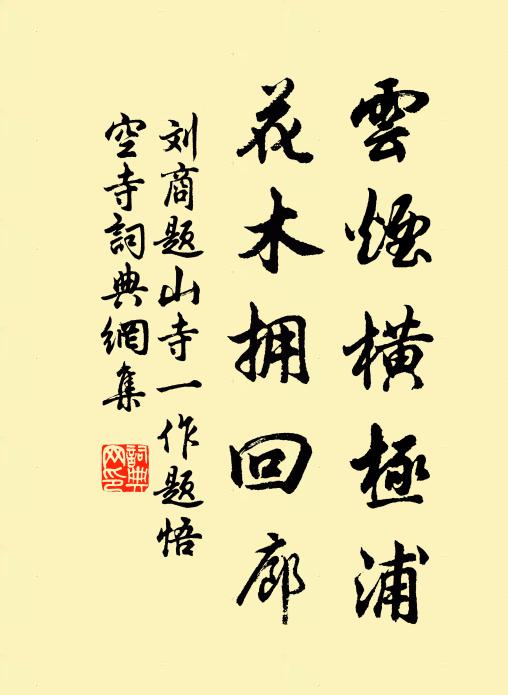 雲煙橫極浦
花木拥回廊
刘商题山寺一作题悟
空寺詞典網集
詞典
网印